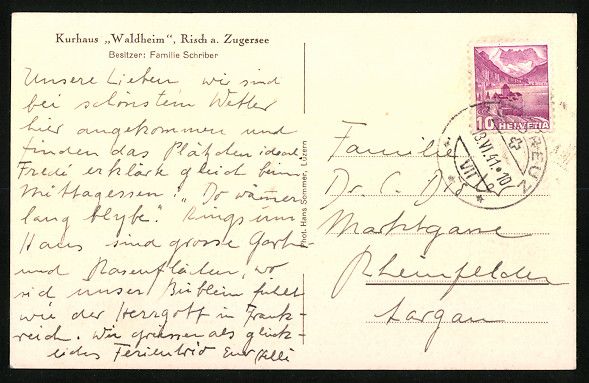 Kurhaus „Waldheim“, Risch a. Zugersee
Besitzer: Familie Schriber
Unsere Lieben wir sind
bei schönstem Wetter
hier angekommen und
finden das Plätzchen ideal
Fredi erklärte gleich beim
Mittagessen: "Do wämer
lang blybe". Rings um
Haus sind grosse Garten
und Rasenflächen, wo
sich unser Büblein fühlt
wie der Herrgott in Frank-
reich. Wir grüssen als glück-
liches Ferientrio Euer
Phot. Hans Sommer, Luzern
10 HELVETIA
VI.41.10
VII
Familie
Dr. C.
Marktgasse
Rheinfelden
Aargau